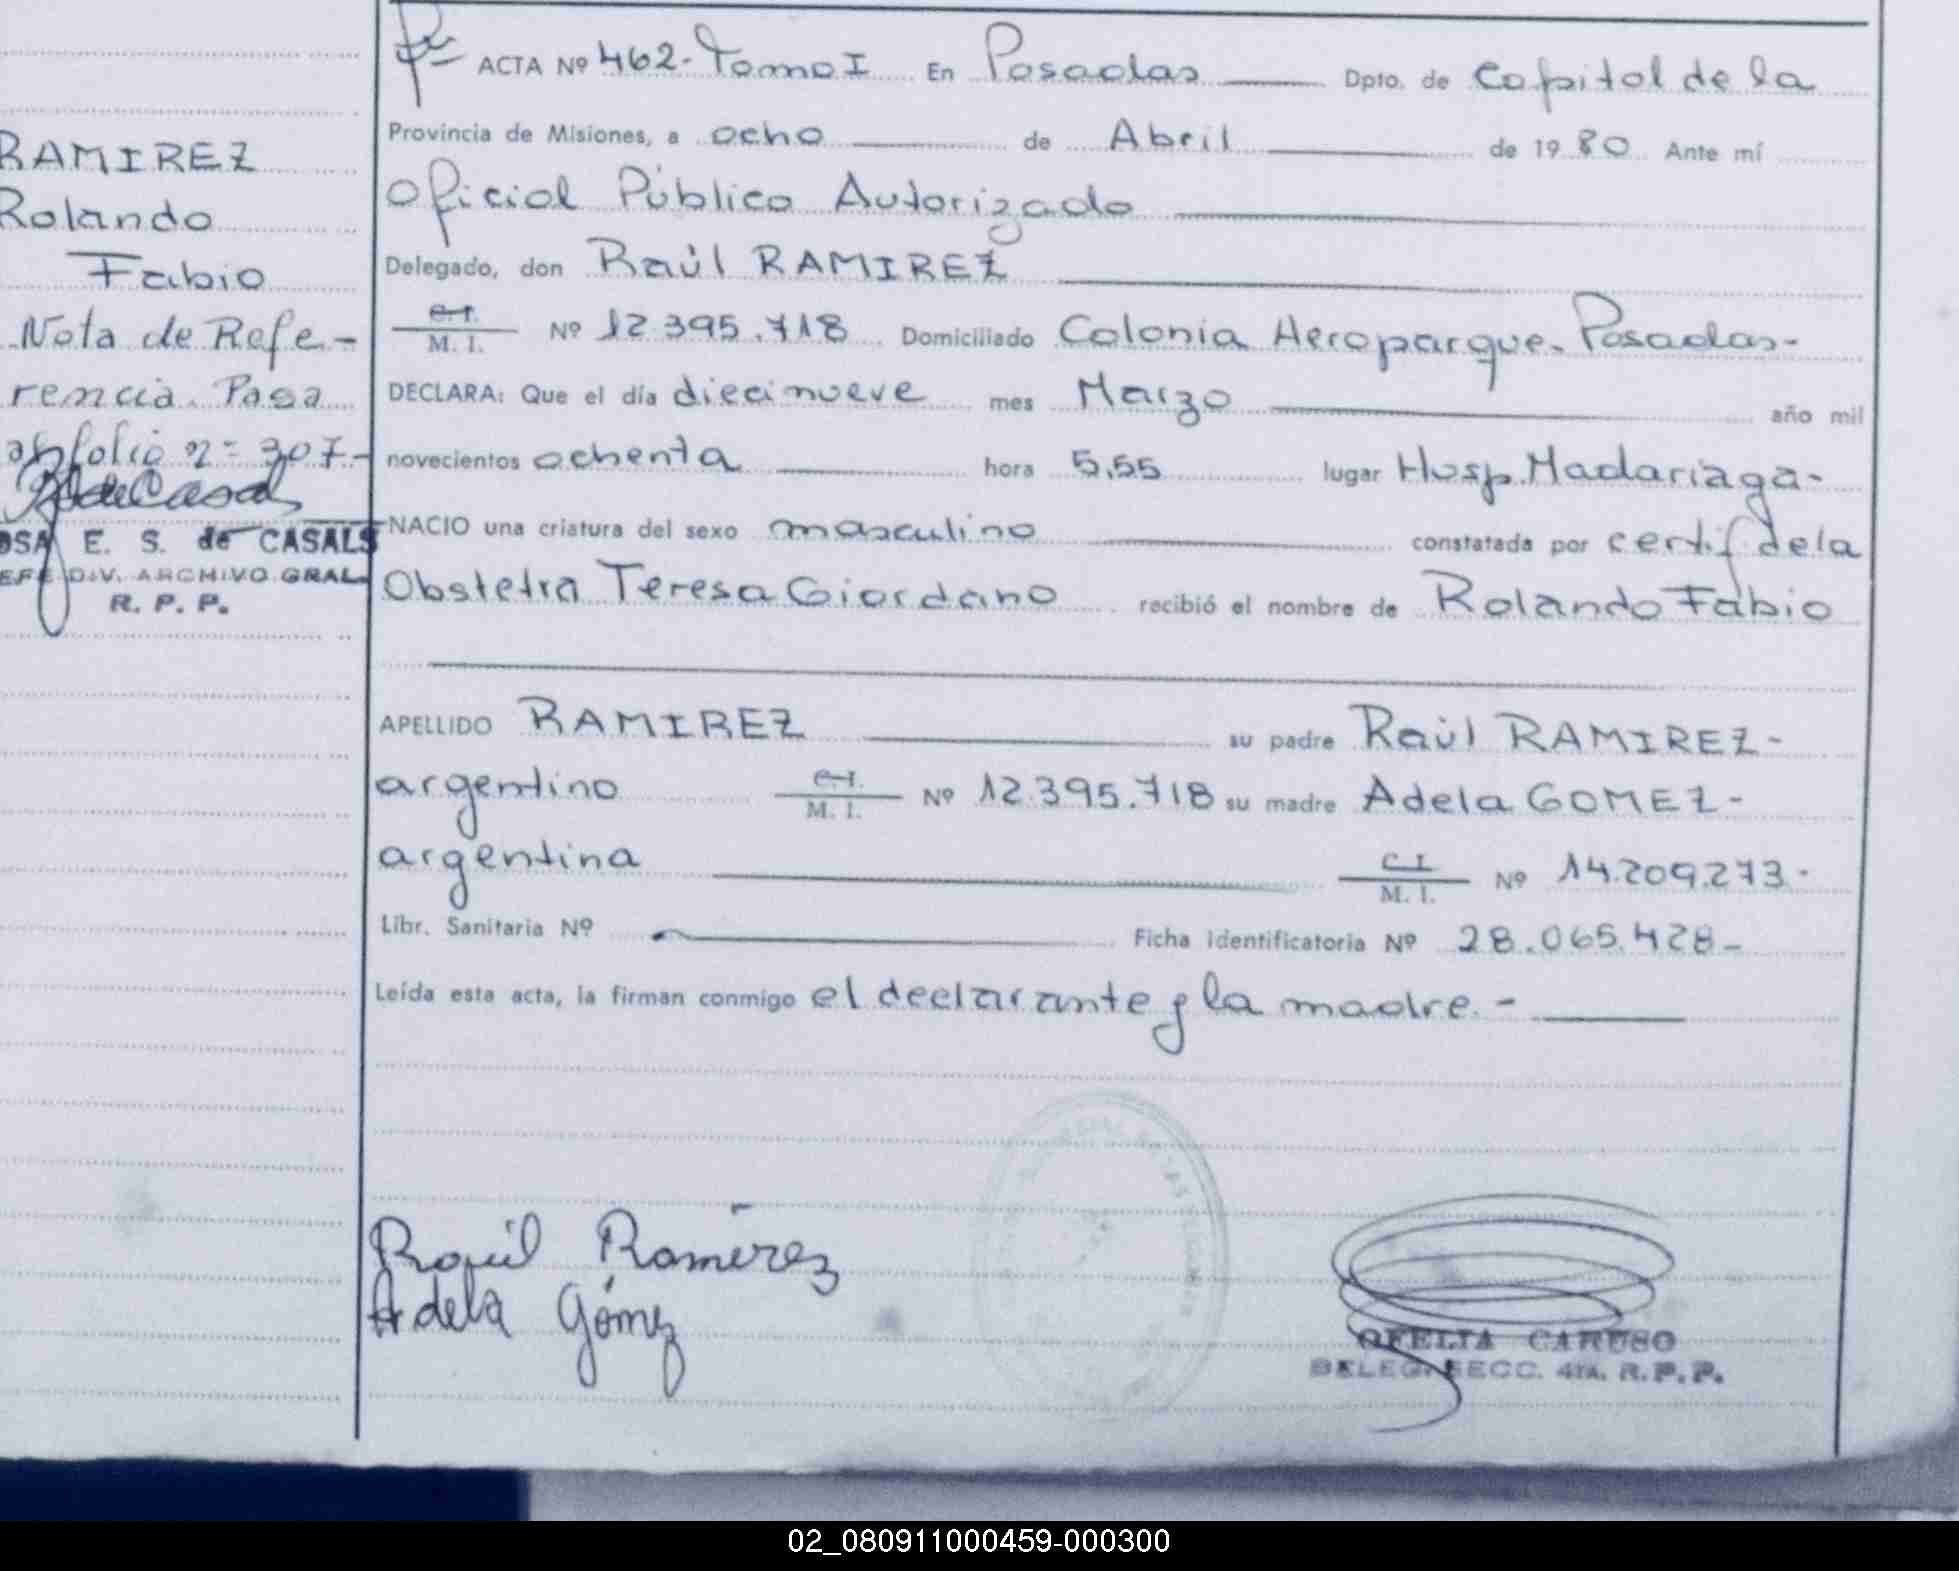 RAMIREZ
Rolando
Fabio
Nota de Refe-
rencia. Pasa
al folio nº 307.-
OSA E. S. de CASALS
EFE DIV. ARCHIVO GRAL.
R. P. P.
ACTA Nº 462- Tomo I En Posadas Dpto. de Capital de la
Provincia de Misiones, a ocho de Abril de 1980 Ante mí
Oficial Público Autorizado
Delegado, don Raúl RAMIREZ
C.I.
M. I. Nº 12.395.718 Domiciliado Colonia Aeroparque- Posadas-
DECLARA: Que el día diecinueve mes Marzo año mil
novecientos ochenta hora 5,55 lugar Hosp. Madariaga-
NACIO una criatura del sexo masculino constatada por certif de la
Obstetra Teresa Giordano recibió el nombre de Rolando Fabio
APELLIDO RAMIREZ su padre Raúl RAMIREZ-
argentino C.I.
M. I. Nº 12.395.718 su madre Adela GOMEZ-
argentina C I
M. I. Nº 14.209.273-
Libr. Sanitaria Nº Ficha Identificatoria Nº 28.065.428-
Leída esta acta, la firman conmigo el declarante y la madre.-
Raúl Ramirez
Adela Gómez
OFELIA CARUSO
DELEG. SECC. 4TA. R.P.P.
02_080911000459-000300